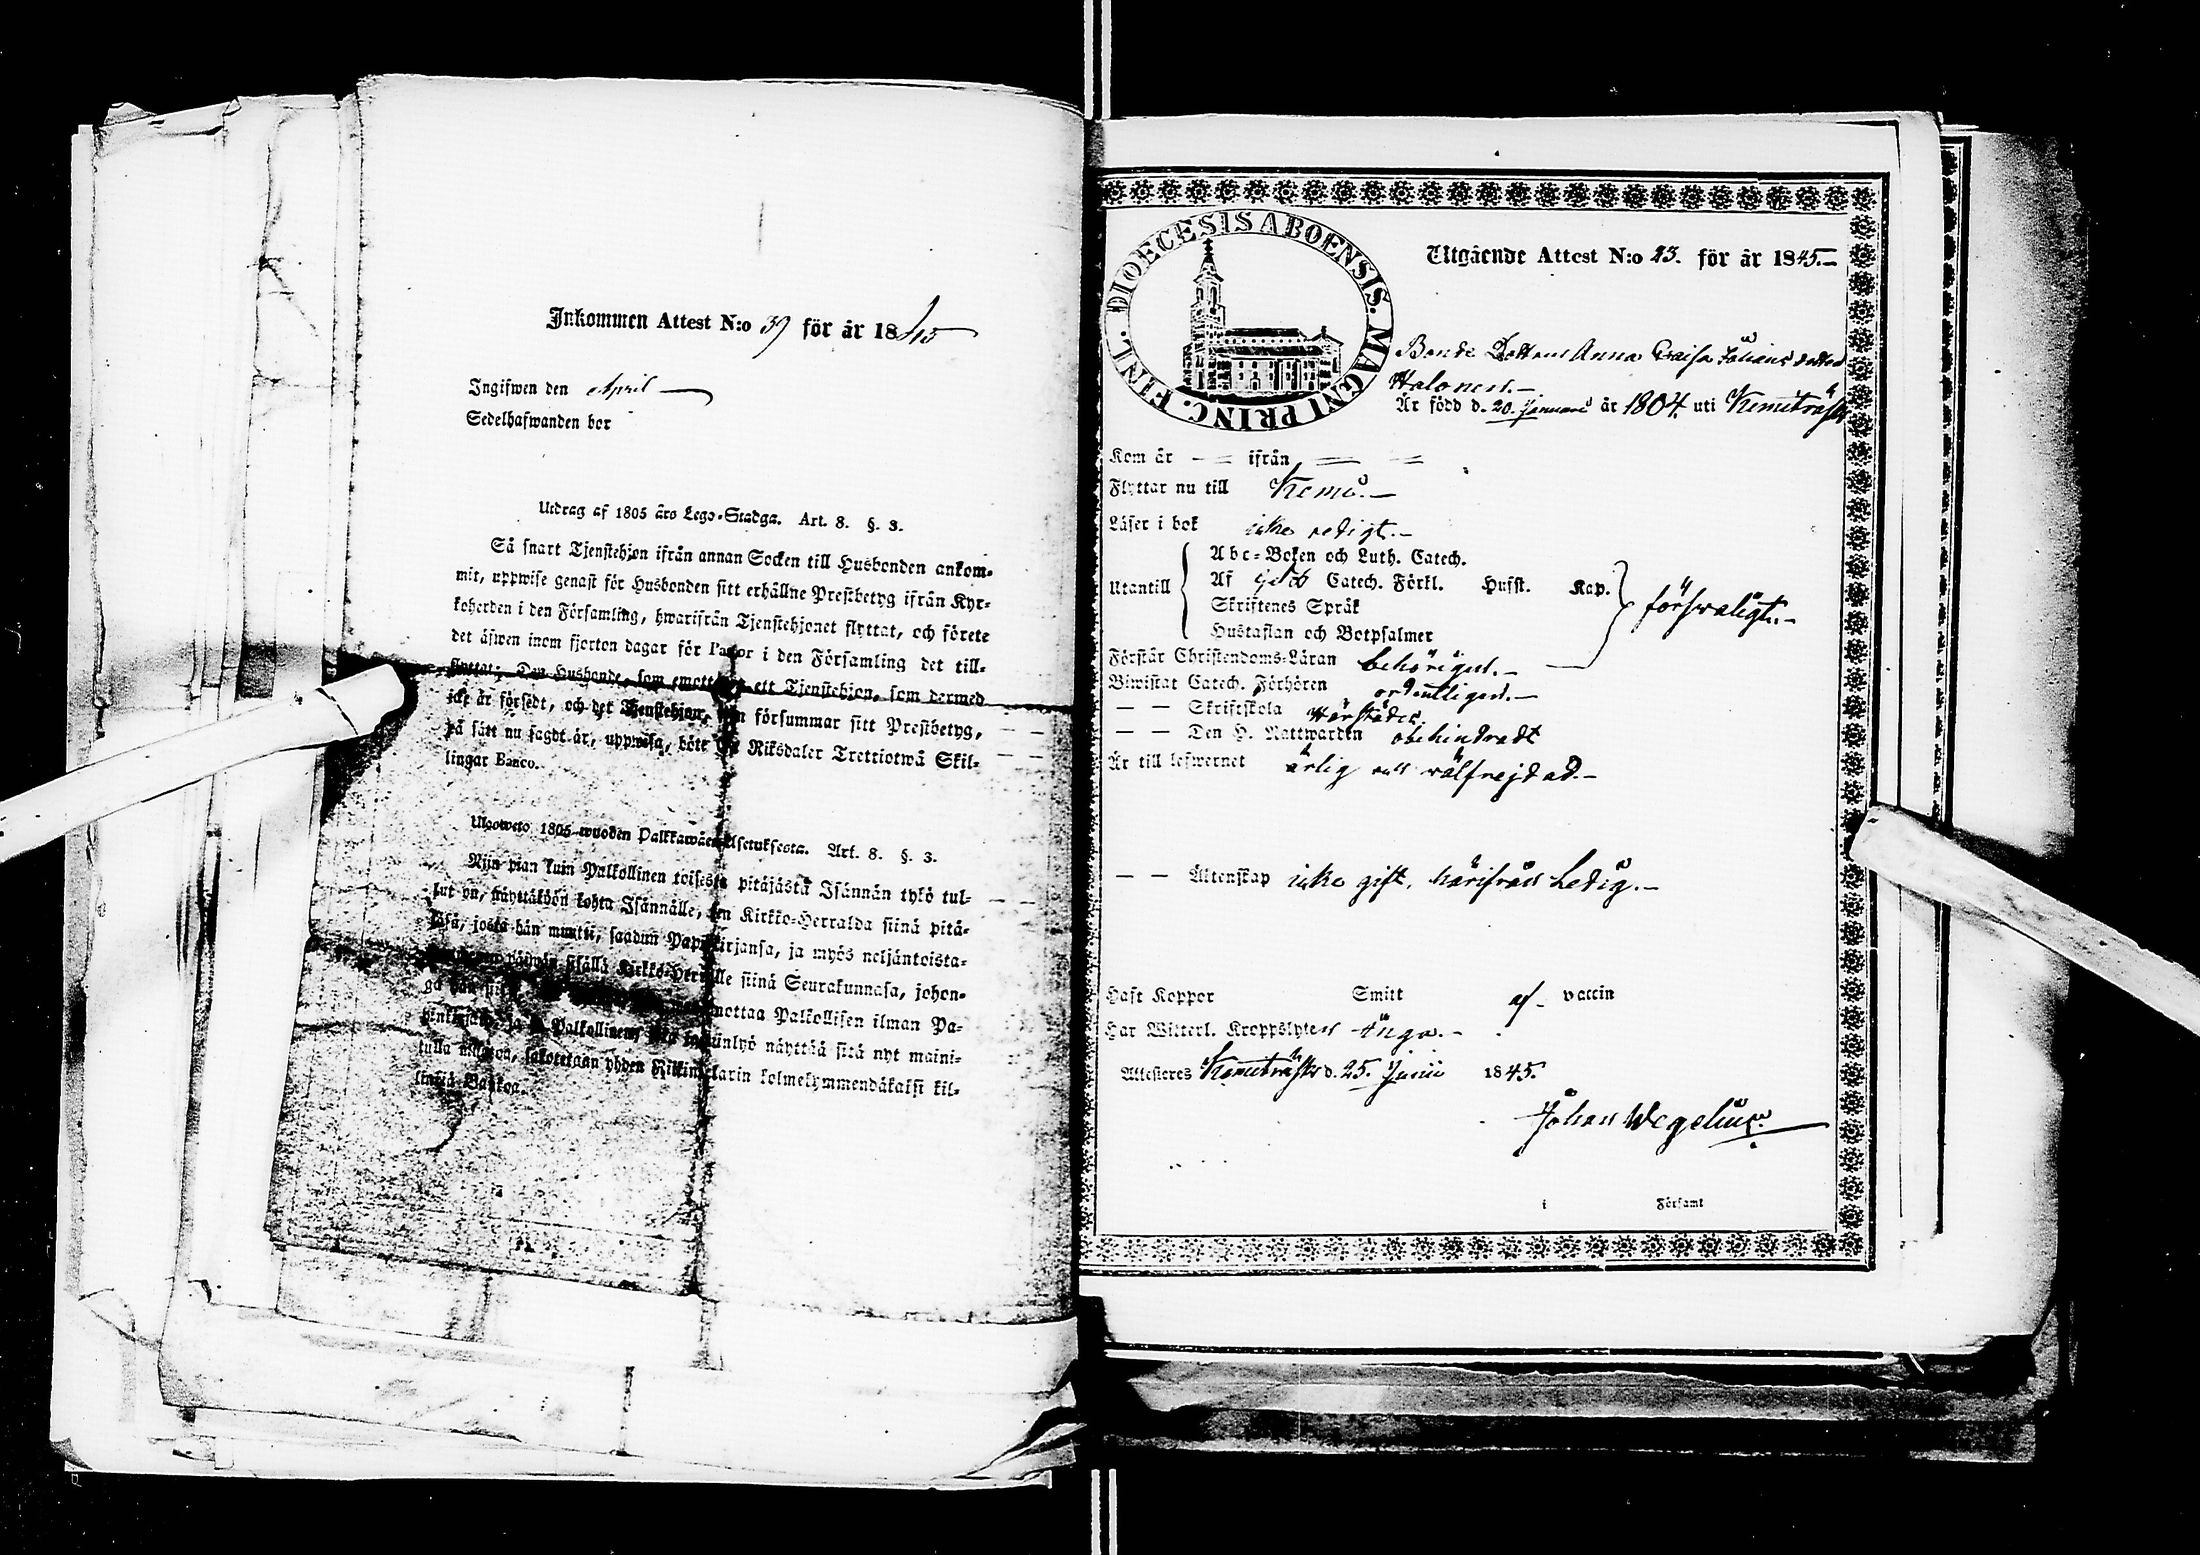 Inkommen Attest N:o 39 för år 1845
Ingifwen den April
Sedelhafwanden bor
Utdrag af 1805 års Lego-Stadga. Art. 8. §. 3.
Så snart Tjenstehjon ifrån annan Socken till Husbonden ankom-
mit, uppwise genast för Husbonden sitt erhållne Prestbetyg ifrån Kyr-
koherden i den Församling, hwarifrån Tjenstehjonet flyttat, och förete
det äfwen inom fjorton dagar för Pastor i den Församling det till-
flyttat; Den Husbonde, som emottager ett Tjenstehjon, som dermed
icke är försedt, och det Tjenstehjon, som försummar sitt Prestbetyg,
på sätt nu sagdt är, uppwisa, böte en Riksdaler Trettiotwå Skil-
lingar Banco.
Ulosweto 1805 wuoden Palkkawäen Asetuksesta. Art. 8. §. 3.
Niin pian kuin Palkollinen toisesta pitäjästä Isännän tykö tul-
lut on, näyttäköön kohta Isännälle, sen Kirkko-Herralda siinä pitä-
jäsä, josta hän muutti, saadun Papinkirjansa, ja myös neljäntoista-
päiwän sisällä Kirkko-Herralle siinä Seurakunnasa, johon-
ga hän ottaa Palkollisen ilman Pa-
pinkirjata, ja Palkollinen, näyttää sitä nyt maini-
tulla muotoa, sakotetaan yhden Riikintalarin kolmekymmendäkaksi kil-
lingiä Bankoa.
FINL. DIOECESIS ABOENSIS. MAGNI PRINC.
Utgående Attest N:o 23. för år 1845.
Bonde Dottern Anna Caisa Johansdotter
Halonen.
Är född d. 20. Januari år 1804. uti Kemiträsk
Kom år — ifrån —
Flyttar nu till Kemi.
Läser i bok icke redigt.
Utantill
Abc-Boken och Luth. Catech.
Af Catech. Förkl. Husst. Kap.
Skriftenes Språk
Hustaflan och Botpsalmer
förswarligt.
Förstår Christendoms-Läran behörigen.
Biwistat Catech. Förhören ordentligen.
— — Skriftskola härstädes.
— — Den H. Nattwarden obehindradt
Är till lefwernet ärlig och wälfrejdad.
— — Äktenskap icke gift, härifrån Ledig.
Haft Koppor Smitt af vaccin
Har Witterl. Kroppslyten Inga.
Attesteres Kemiträsk d. 25. Junii 1845.
Johan Wegelius.
i Församl